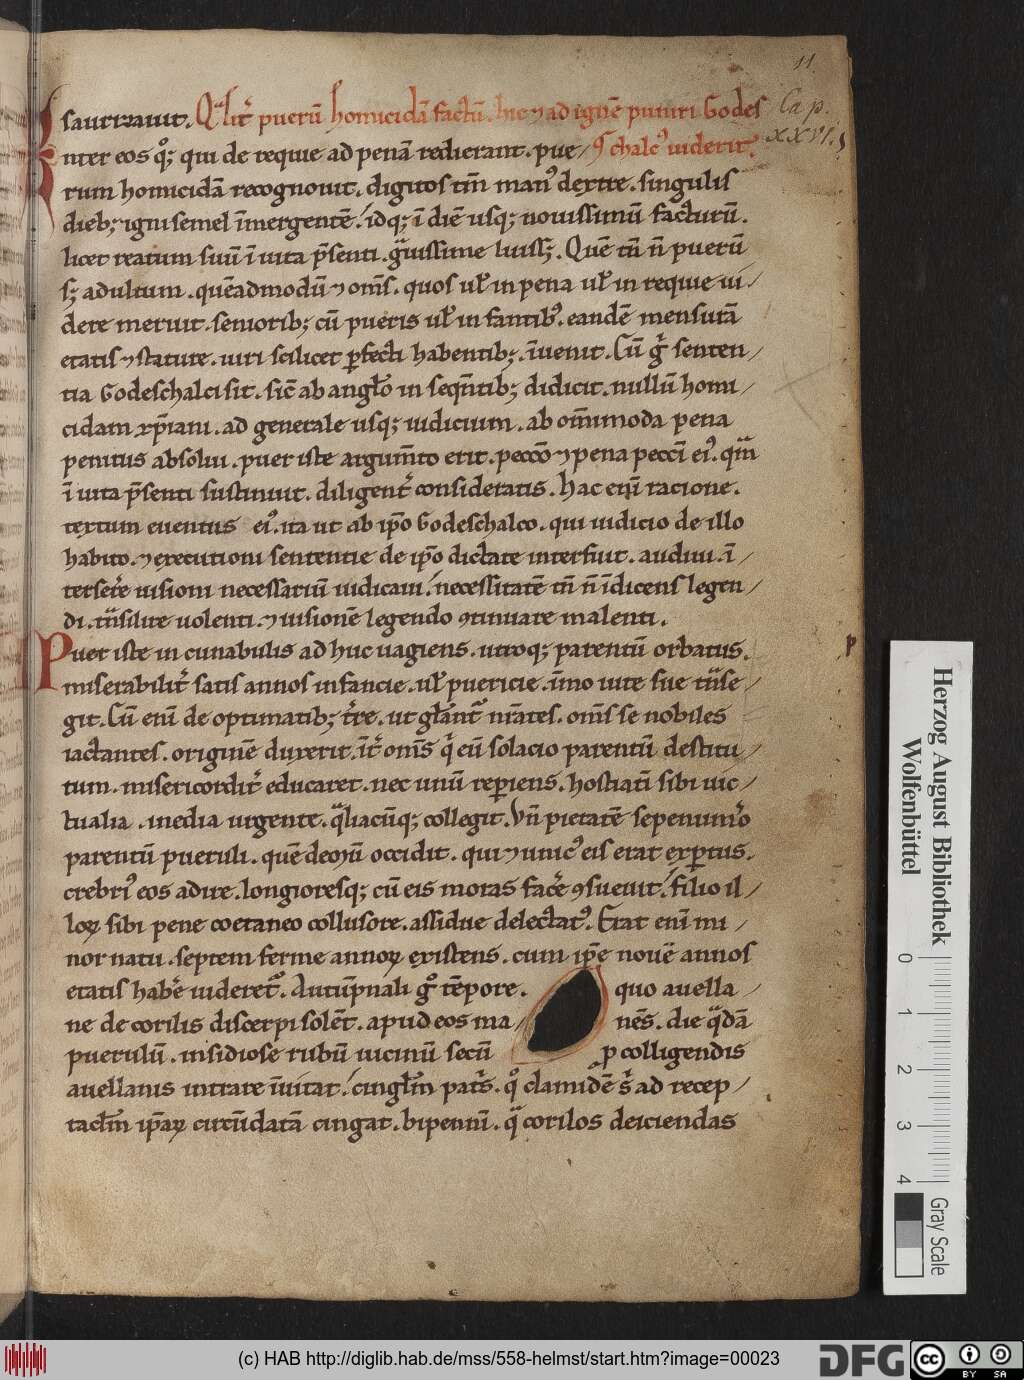 11.
Cap.
XXVI.
sauruzauit. Qualit̉ pueru̅ homicida̅ factu̅. hic ⁊ ad igne̅ puniri Godes
nter eos qͦ; qui de requie ad pena̅ redierant. pue/ ꝯchalcꝰ uiderit.
rum homicida̅ recognouit. digitos tm̅ manꝰ dextre. singulis
dieb; igni semel i̅mergente̅. idq; i̅ die̅ usq; nouissimu̅ facturu̅.
licet reatum suu̅ i̅ uita p̅senti. gᵃuissime luiss;. Que̅ tn̅ n̅ pueru̅
s; adultum. que̅admodu̅ ⁊ om̅s. quos ul̅ in pena ul̅ in requie ui/
dere meruit. seniorib; cu̅ pueris ul̅ infantibꝰ. eande̅ mensura̅
etatis ⁊ stature. uiri scilicet ꝑfecti habentib;. i̅uenit. Cu̅ gͦ senten/
tia Godeschalci sit. sic̅ ab angl̅o in seqn̅tib; didicit. nullu̅ homi/
cidam xp̅iani. ad generale usq; iudicium. ab om̅imoda pena
penitus absolui. puer iste argum̅to erit. pecco̅ ⁊ pena pecci̅ eiꝰ. qᵃm
i̅ uita p̅senti sustinuit. diligent̉ consideratis. Hac eni̅ racione.
textum euentus eiꝰ. ita ut ab ip̅o Godeschalco. qui iudicio de illo
habito. ⁊ executioni sententie de ip̅o dictate interfuit. audiui. i̅/
terser̉e uisioni necessariu̅ iudicaui. necessitate̅ tn̅ n̅ i̅dicens legen/
di. tᵃnsilire uolenti. ⁊ uisione̅ legendo ꝯtinuare malenti.
Puer iste in cunabulis adhuc uagiens. utroq; parentu̅ orbatus.
miserabilit̉ satis annos infancie. ul̅ puericie. i̅mo uite sue tᵃnse/
git. Cu̅ eni̅ de optimatib; t̉re. ut gl̅ant̉ nr̅ates. om̅s se nobiles
iactantes. origine̅ duxerit. i̅t̉ om̅s qͥ eu̅ solacio parentu̅ destitu/
tum. misericordit̉ educaret. nec unu̅ rep̅iens. hostiati̅ sibi uic/
tualia. inedia urgente. qᵃliacu̅q; collegit. Vn̅ pietate̅ sepenum̉o
parentu̅ pueruli. que̅ demu̅ occidit. qui ⁊ unicꝰ eis erat exꝑtus.
crebriꝰ eos adire. longioresq; cu̅ eis moras fac̉e ꝯsueuit. filio il/
loꝝ sibi pene coetaneo collusore. assidue delectatꝰ. Erat eni̅ mi
nor natu. septem ferme annoꝝ existens. cum ip̅e noue̅ annos
etatis hab̉e uideret̉. Autu̅pnali gͦ te̅pore. quo auella/
ne de corilis discerpi sole̅t. apud eos ma/ ne̅s. die qᵃda̅
puerulu̅. insidiose rubu̅ uicinu̅ secu̅ ꝓ colligendis
auellanis intrare i̅uitat. cingl̅m pat̉s. qͦ clamide̅ s̉ ad recep/
tacl̅m ip̅aꝝ circu̅data̅ cingat. bipenni̅. qᵃ corilos deiciendas
P
Herzog August Bibliothek
Wolfenbüttel
0
1
2
3
4
Gray Scale
(c) HAB http://diglib.hab.de/mss/558-helmst/start.htm?image=00023
DFG
cc
BY SA